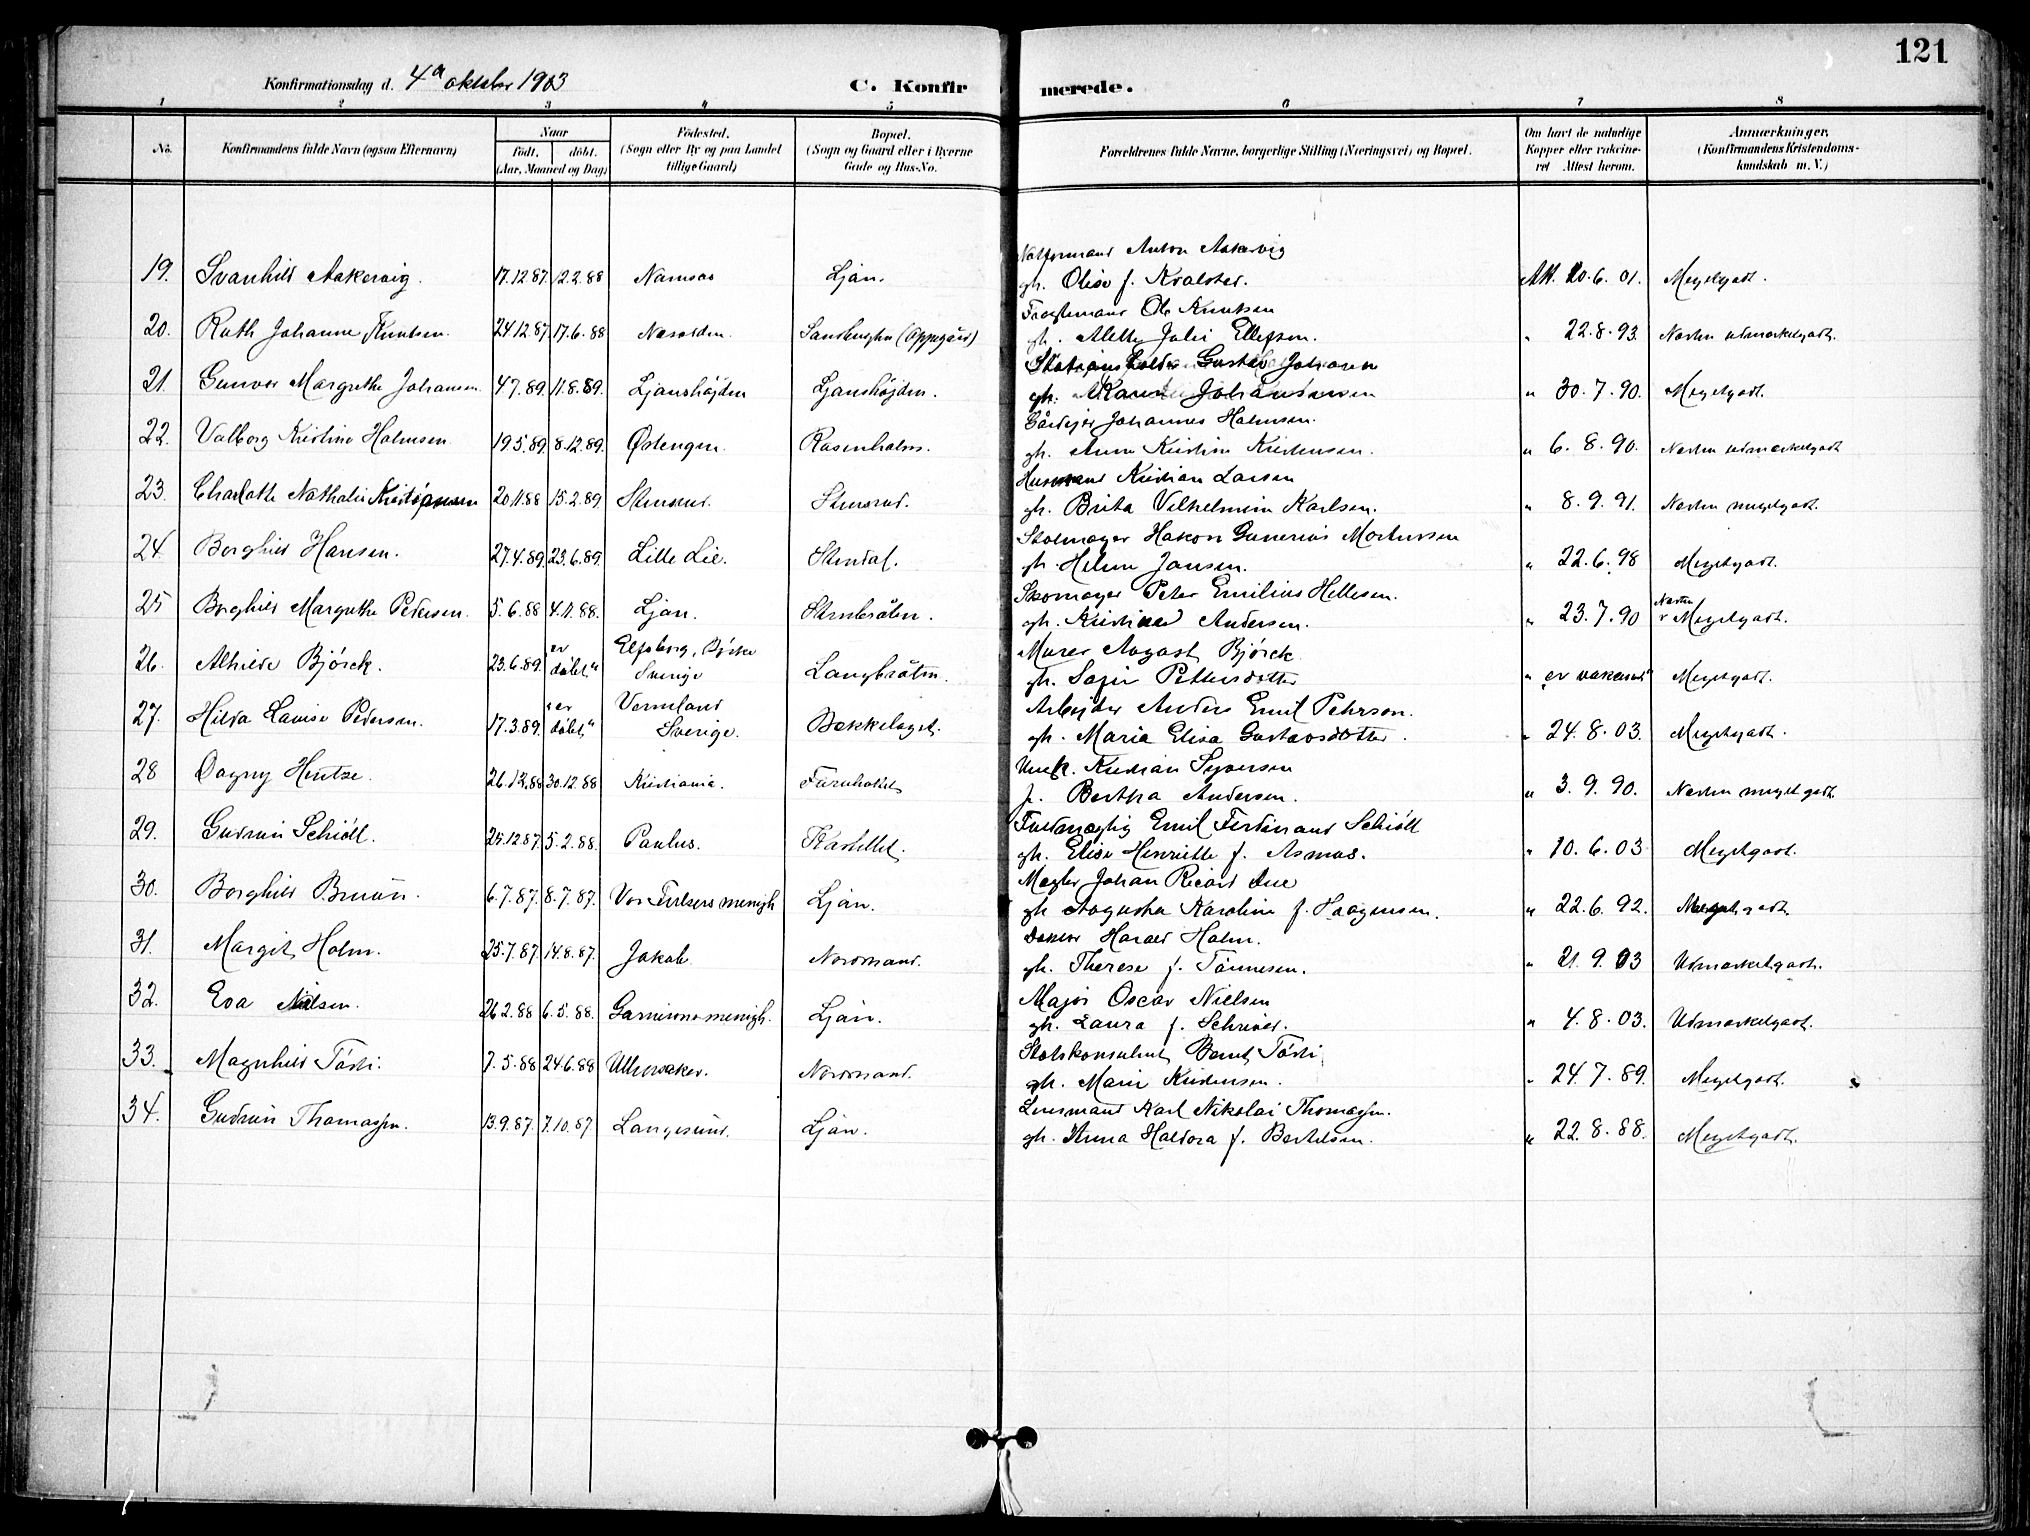 121
Konfirmationsdag d. 4de oktober 1903 C. Konfirmerede.
1 2 3 4 5 6 7 8
No. Konfirmandens fulde Navn (ogsaa Efternavn) Naar født. døbt. (Aar, Maaned og Dag) Fødested. (Sogn eller By og paa Landet tillige Gaard) Bopæl. (Sogn og Gaard eller i Byerne Gade og Hus-No. Forældrenes fulde Navne, borgerlige Stilling (Næringsvei) og Bopæl. Om havt de naturlige Kopper eller vakcineret Attest herom. Anmærkninger. (Konfirmandens Kristendomskundskab m. V.)
Anton Aakervig
19. Svanhild Aakervig. 17.12.87. 12.2.88 Namsos Ljan. gh. Olise f. Kvalstad. Att. 20.6.01. Megetgodt.
Ole Knutsen
20. Ruth Johanne Knutsen. 24.12.87. 17.6.88 Nesodden. (Oppegård) gh. Alette Julie Ellefsen. " 22.8.93. Næsten udmærketgodt.
Gustav Johansen
21. Gunvor Margrethe Johansen 4.7.89. 11.8.89. Ljanshøjden Ljanshøjden. gh. Johansen " 30.7.90. Megetgodt.
Gårdejer Johannes Halmsen.
22. Valborg Kristine Halmsen. 19.5.89. 8.12.89. Østengen. Rosenholm. gh. Anne Kristine Kristensen. " 6.8.90. Næsten udmærketgodt
Husmand Kristian Larsen
23. Charlotte Nathalie 20.11.88 15.2.89. Stensrud. Stensrud. gh. Brita Vilhelmine Karlsen. " 8.9.91. Næsten megetgodt.
Stolmager Hakon Gunerius Mortensen
24. Borghild Hansen. 27.4.89. 23.6.89. Lille Lie. Stendal. gh. Helene Jansen. " 22.6.98 Megetgodt.
Skomager Peter Emilius Hellesen.
25 Borghild Margrethe Pedersen. 5.6.88 4.11.88. Ljan. Stenbråten. gh. Andersen. " 23.7.90 Næsten Megetgodt.
Murer August Bjørck
26. Alhilde Bjørck. 23.6.89. "er døbt" Elfsborg, Sverige Langbråten. gh. Sofie Pettersdotter " "er vakcineret" Megetgodt.
Arbejder Anders Emil Pehrson.
27. Hilda Lovise Pedersen. 17.3.89. "er døbt" Vermland Sverige. Bækkelaget. gh. Maria Elisa Gustavsdotter. " 24.8.03. Megetgodt.
Ungk. Kristian Syversen
28 Dagny Hentze. 26.12.88 30.12.88 Kristiania. f. Bertha Andersen. " 3.9.90. Næsten meget godt.
Fuldmægtig Emil Ferdinand Schiøtt
29. Gudrun Schiøtt. 25.12.87 5.2.88. Paulus. Kastellet. gh. Elise Henriette f. Asmus. " 10.6.03 Megetgodt.
Megler Johan Ricard Due
30. Borghild 6.7.87. 8.7.87. Vor Frelsers menigh Ljan. gh. Augusta Karoline f. Haagensen. " 22.6.92. Megetgodt.
Doktor Harald Holm.
31. Margit Holm. 25.7.87. 14.8.87. Jakob Nordstrand. gh. Therese f. Tönnesen. " 21.9.03 Udmærketgodt.
Major Oscar Nielsen
32. Eva Nielsen. 26.2.88 6.5.88. Garnisonsmenigh. Ljan. gh. Laura f. Schriver. " 4.8.03. Udmærketgodt.
Statskonsulent Bernt Tösti
33. Magnhild Tösti. 7.5.88 24.6.88 Ullensaker. Nordstrand. gh. Marie Kristensen. " 24.7.89. Megetgodt.
Lensmand Karl Nikolai Thomassen.
34. Gudrun Thomassen. 13.9.87. 7.10.87 Langesund. Ljan. gh. Anna Haldora f. Bertelsen. " 22.8.88. Megetgodt.